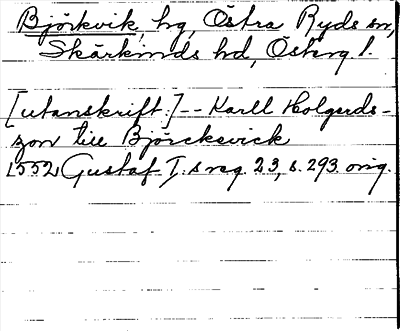 Björkvik, hg, Östra Ryds sn,
Skärkinds hd, Österg. l.
[utanskrift:] -- Karll Holgerds-
zon till Björckevick
1552 Gustaf I.s reg. 23, s. 293. orig.